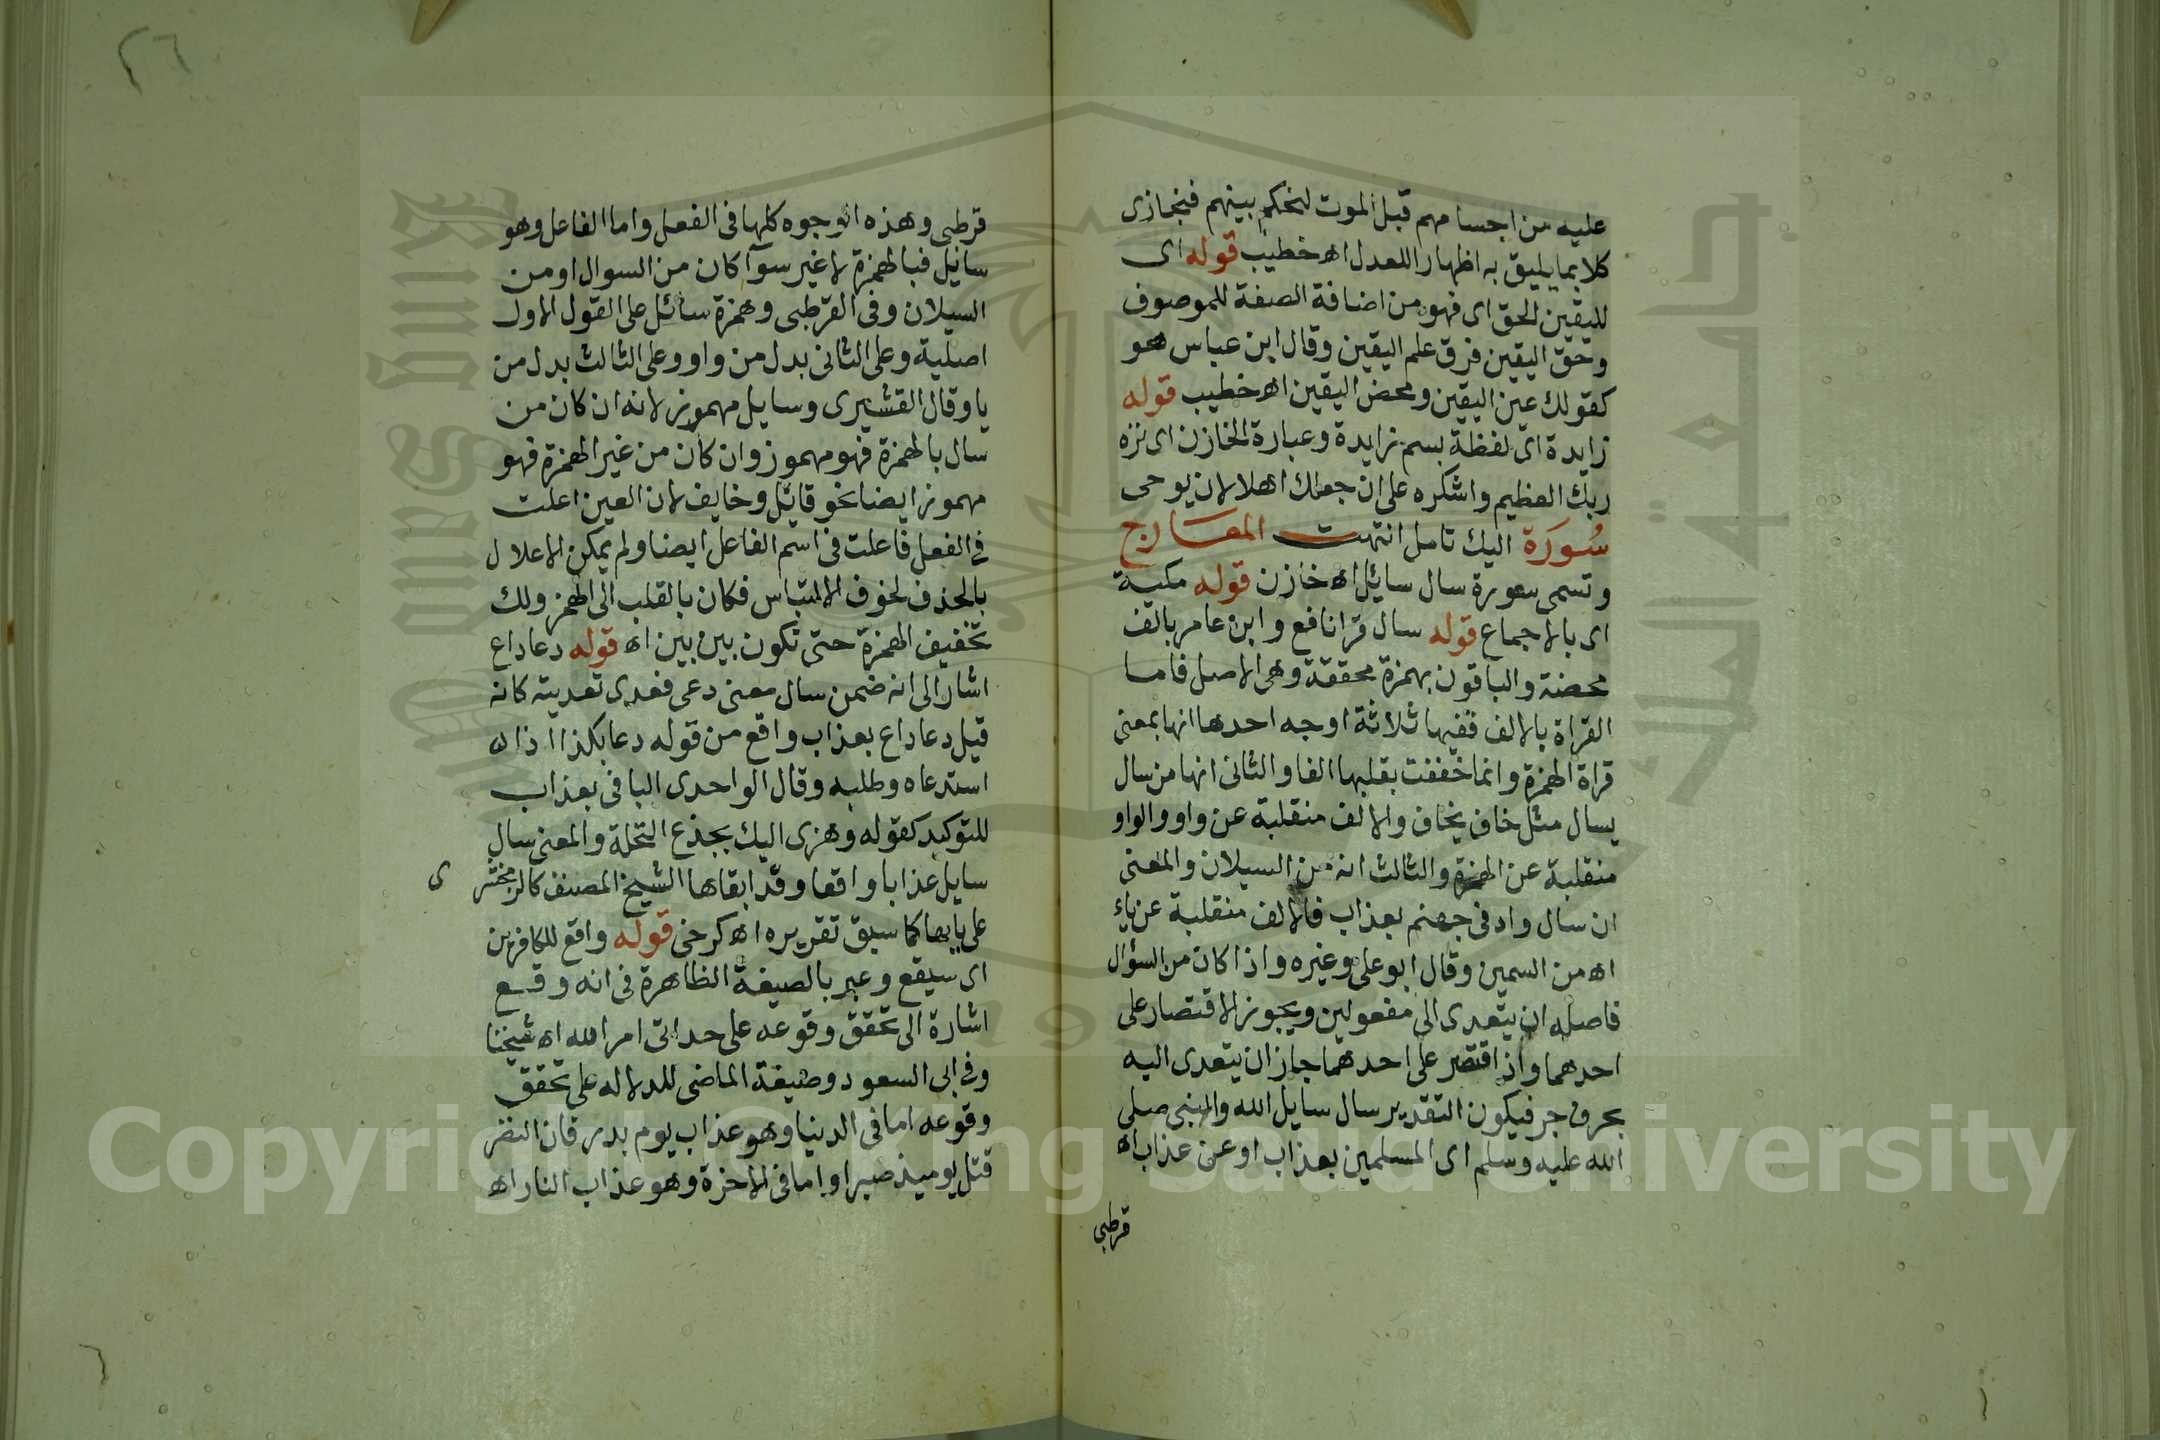 عليه من اجسامهم قبل الموت لنحكم بينهم فنجازى
كلا بما يليق به اظهارا للعدل اه خطيب قوله اى
لليقين الحق اى فهو من اضافة الصفة للموصوف
وحق اليقين فوق علم اليقين وقال ابن عباس هو
كقولك عين اليقين ومحض اليقين اه خطيب قوله
زايدة اى لفظة بسم زايدة وعبارة الخازن اى نزه
ربك العظيم واشكره على ان جعلك اهلا لان يوحى
اليك تامل انتهت سورة المعارج
وتسمى سورة سال سائل اه خازن قوله مكية
اى بالاجماع قوله سال قرا نافع وابن عامر بالف
محضة والباقون بهمزة محققة وهى الاصل فاما
القراة بالالف ففيها ثلاثة اوجه احدها انها بمعنى
قراة الهمزة وانما خففت بقلبها الفا والثانى انها من سال
يسال مثل خاف يخاف والالف منقلبة عن واو والواو
منقلبة عن الهمزة والثالث انه من السيلان والمعنى
ان سال واد فى جهنم بعذاب فالالف منقلبة عن ياء
اه من السمين وقال ابو على وغيره واذا كان من السؤال
فاصله ان يتعدى الى مفعولين ويجوز الاقتصار على
احدهما واذ اقتصر على احدهما جاز ان يتعدى اليه
بحرف جر فيكون التقدير سال سايل الله والنبى صلى
الله عليه وسلم اى المسلمين بعذاب او عن عذاب اه
قرطبى
٢٦
قرطبى وهذه الوجوه كلها فى الفعل واما الفاعل وهو
سائل فبالهمزة لا غير سوآ كان من السوال او من
السيلان وفى القرطبى وهمزة سائل على القول الاول
اصلية وعلى الثانى بدل من واو وعلى الثالث بدل من
يا وقال القشيرى وسايل مهموز لانه ان كان من
سال بالهمزة فهو مهموز وان كان من غير الهمزة فهو
مهموز ايضا نحو قائل وخايف لان العين اعلت
فى الفعل فاعلت فى اسم الفاعل ايضا ولم يمكن الاعلال
بالحذف لخوف الالتباس فكان بالقلب الى الهمز ولك
تخفيف الهمزة حتى تكون بين بين اه قوله دعا داع
اشار الى انه ضمن سال معنى دعى فعدى تعديته كانه
قيل دعا داع بعذاب واقع من قوله دعا بكذا اذا
استدعاه وطلبه وقال الواحدى البا فى بعذاب
للتوكيد كقوله وهزى اليك بجذع النخلة والمعنى سال
سايل عذابا واقعا وقد ابقاها الشيخ المصنف كالزمخشر ى
على بابها كما سبق تقريره اه كرخى قوله واقع للكافرين
اى سيقع وعبر بالصيغة الظاهرة فى انه وقع
اشارة الى تحقق وقوعه على حد اتى امر الله اه شيخنا
وفى ابى السعود وصيغة الماضى للدلاله على تحقق
وقوعه اما فى الدنيا وهو عذاب يوم بدر فان النضر
قتل يوميذ صبرا واما فى الاخرة وهو عذاب النار اه
Copyright © King Saud University